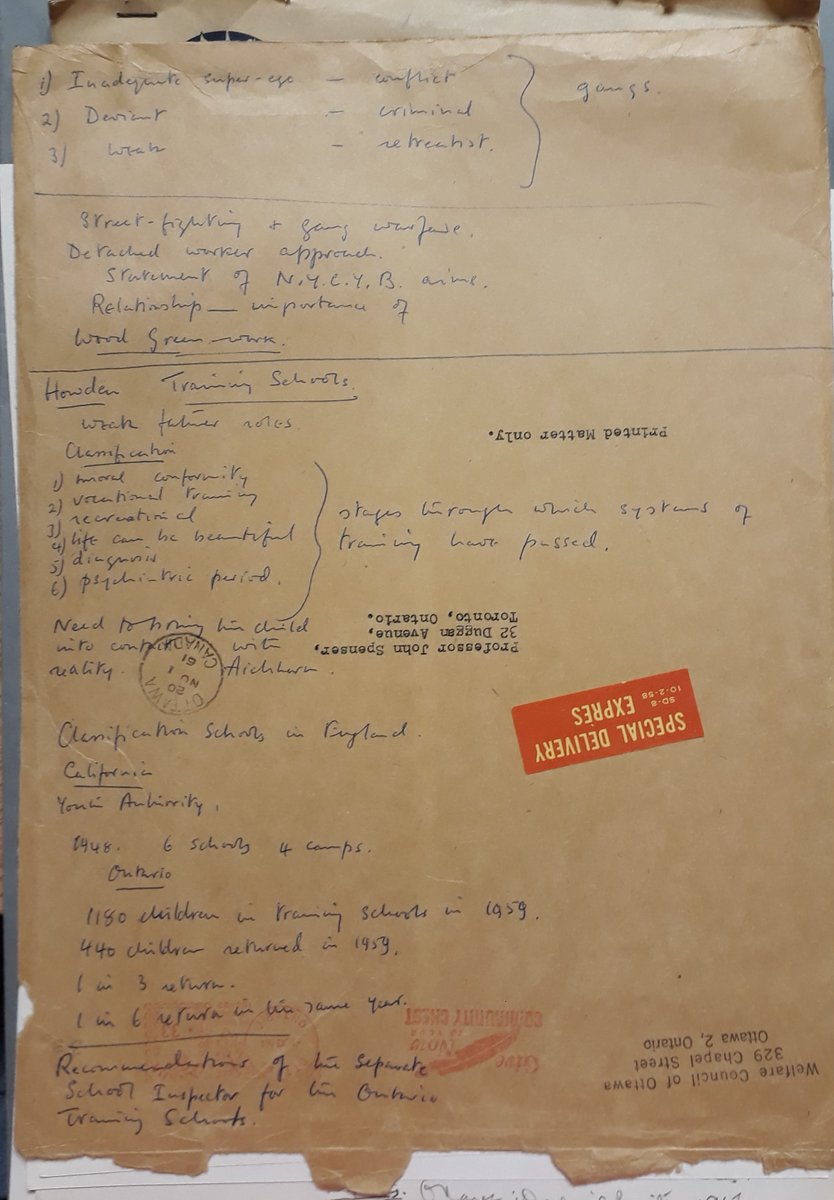 1) Inadequate super-ego — conflict
2) Deviant — criminal
3) weak — retreatist.
gangs.
Street-fighting + gang warfare.
Detached worker approach.
Statement of N.Y.C.Y.B. aims.
Relationship — importance of
Wood Green work.
Howden Training Schools.
weak father roles.
Classification
1) moral conformity
2) vocational training
3) recreational
4) life can be beautiful
5) diagnosis
6) psychiatric period.
stages through which systems of
training have passed.
Printed Matter only.
Need to bring the child
into contact with
reality. Aichhorn.
Professor John Spenser,
32 Duggan Avenue,
Toronto, Ontario.
OTTAWA
20
61
CANADA
SPECIAL DELIVERY
EXPRÈS
SD-8
10-2-58
Classification Schools in England.
California
Youth Authority,
1948. 6 schools 4 camps.
Ontario
1180 children in training schools in 1959.
440 children returned in 1959.
1 in 3 return.
1 in 6 return in the same year.
Give
NOW
COMMUNITY CHEST
Welfare Council of Ottawa
329 Chapel Street
Ottawa 2, Ontario
Recommendations of the Separate
School Inspector for the Ontario
Training Schools.